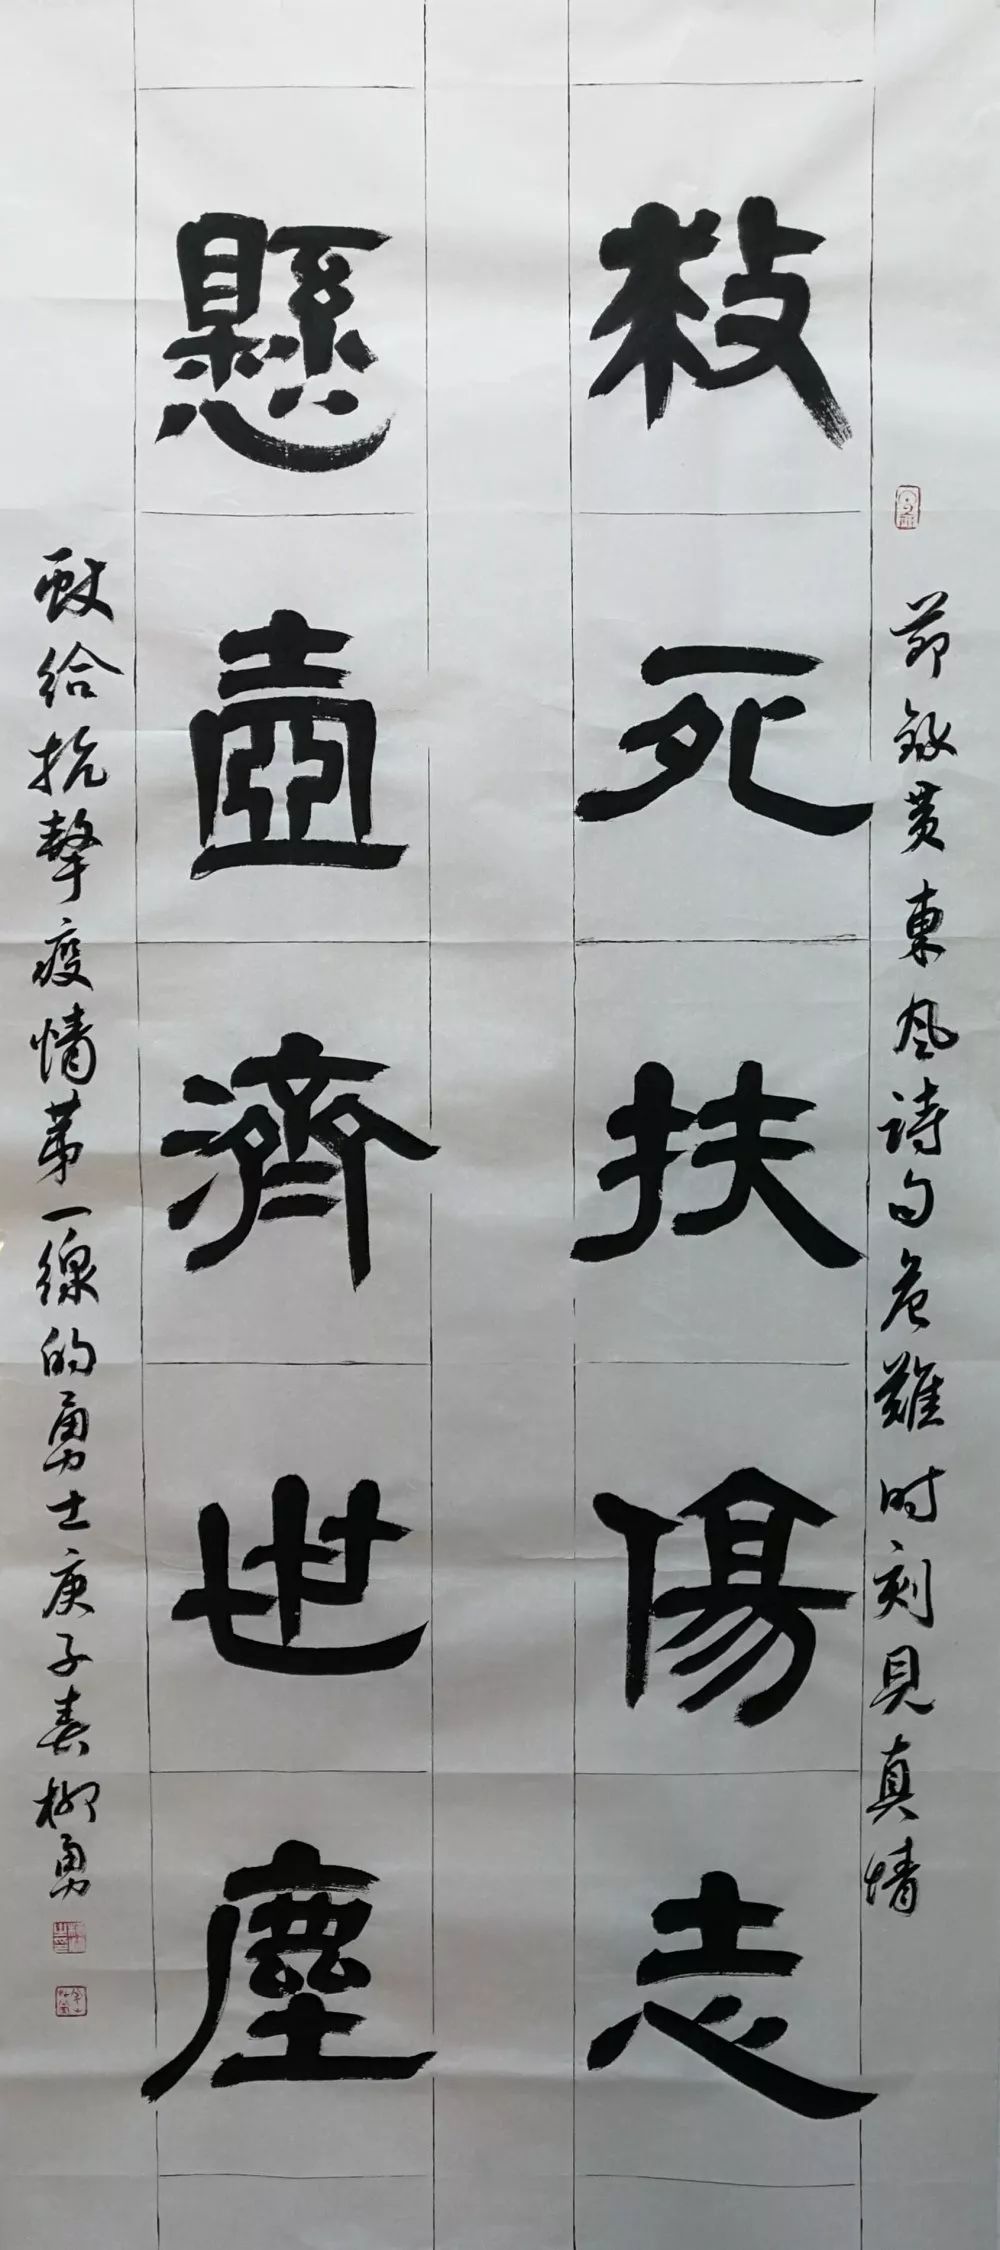 節録黄東风詩句危難时刻見真情
救死扶傷志
懸壺濟世塵
献给抗擊疫情第一線的勇士庚子春柳勇